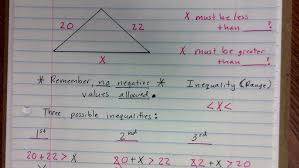 20 22 X must be less
than ?
X X must be greater
than ?
* Remember, no negative * Inequality (Range)
values allowed. < X <
Three possible inequalities:
1st 2nd 3rd
20 + 22 > X 20 + X > 22 22 + X >